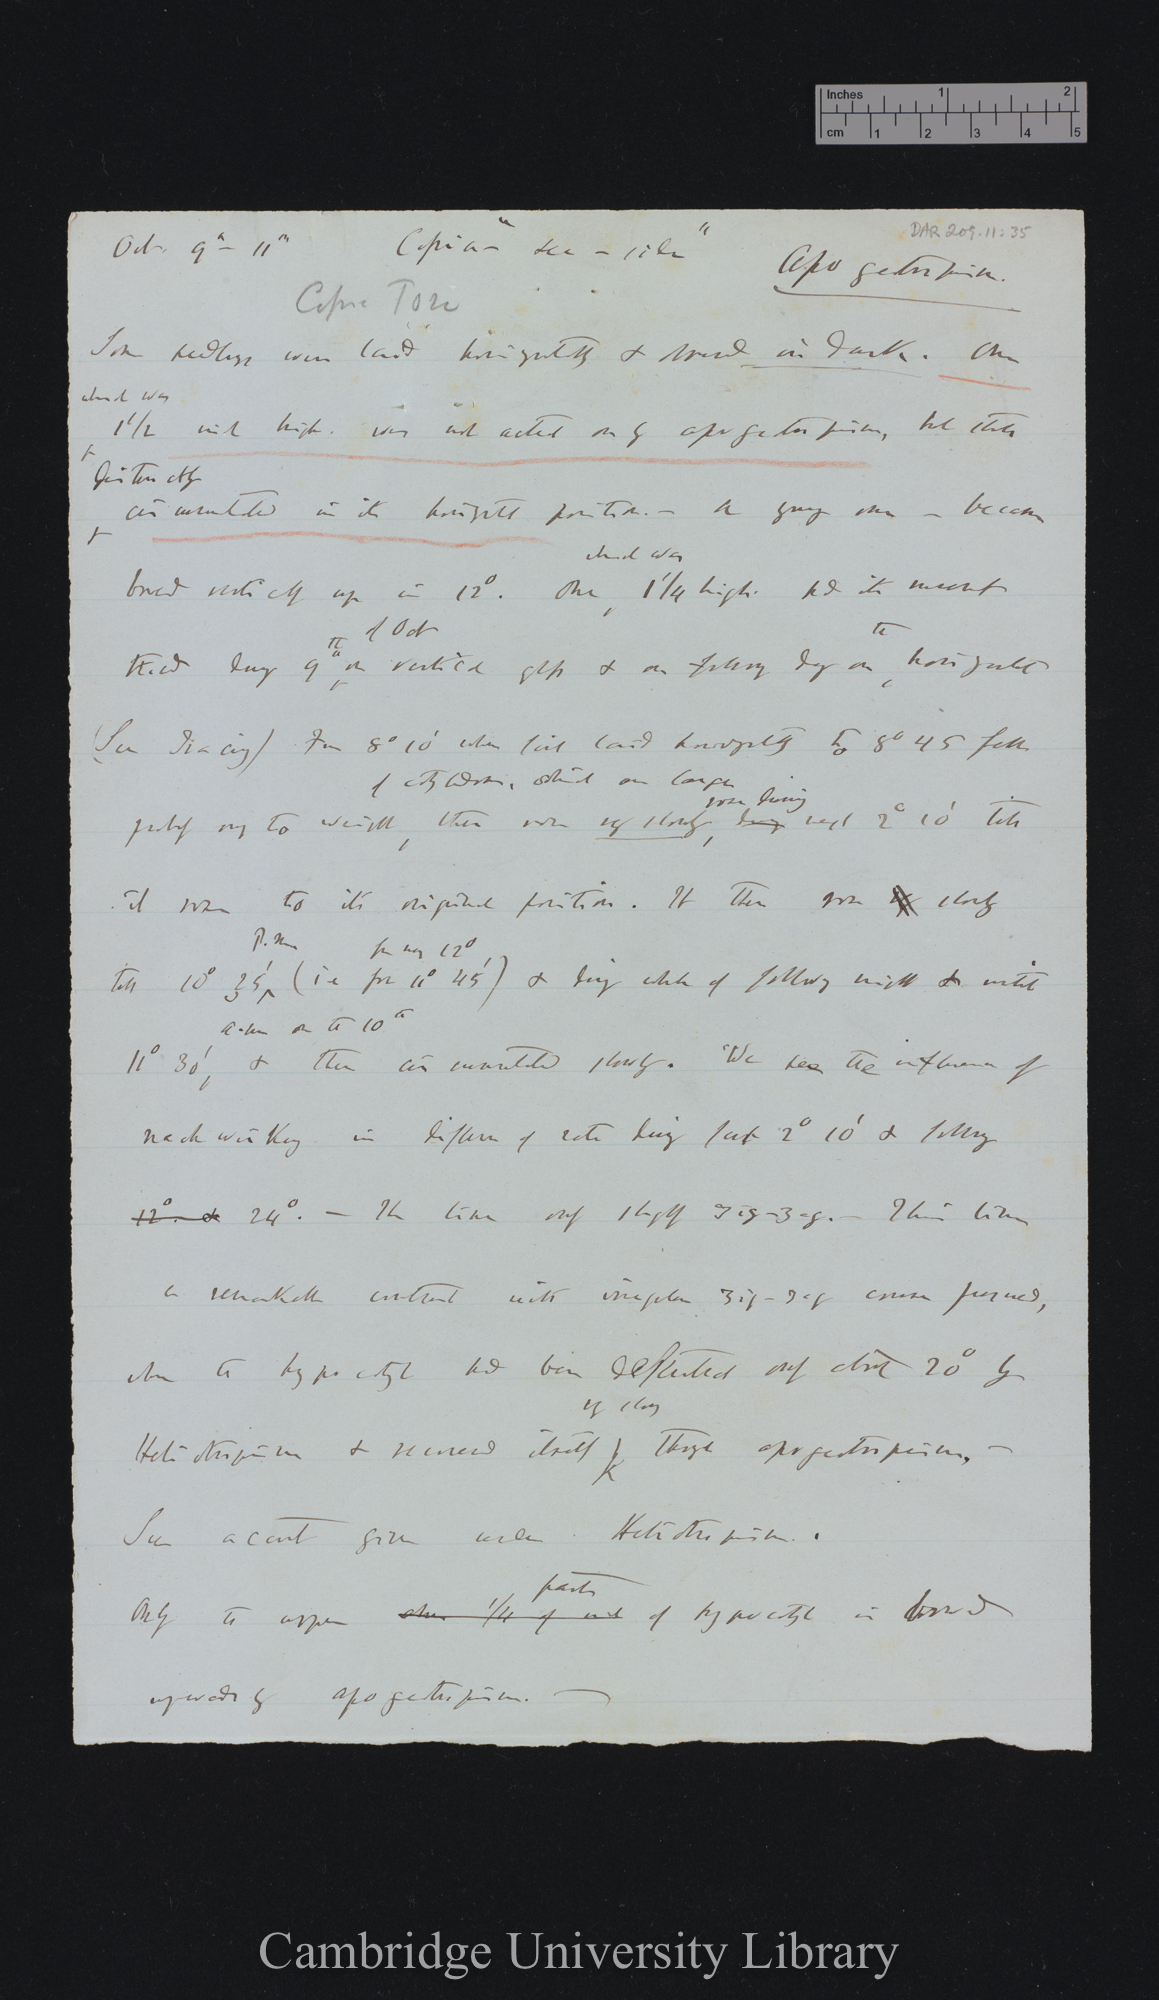 Inches 1 2
cm 1 2 3 4 5
DAR 209.11:35
Oct. 9th - 11th
Apogeotropism.
Some seedlings were laid horizontally & placed in dark. One
which was
1 1/2 inch high. was not acted on by apogeotropism, but
distinctly
circumnutated in its horizontal position. — a young one — became
which was
bowed vertically up in 12°. One, 1 1/4 high. had its movement
of Oct the
traced during 9th on vertical glass & on following day on horizontal
(See tracing) From 8° 10' when first laid horizontally to 8° 45' fell
of cotyledons, which are large
probably owing to weight, then rose very slowly, during next 2° 10' till
rose during
it rose to its original position. It then rose slowly
P.m for nearly 12°
till 10° 35' (i.e for 11° 45') & during whole of following night & until
a.m on the 10th
11° 30', & then circumnutated slowly. We see the influence of
nachwirkung in difference of rate during first 2° 10' & following
12° & 24°. — The line only slightly zig-zag. — This line
a remarkable contrast with irregular zig-zag course pursued,
when the hypocotyl had been deflected only about 20° by
very slowly
Heliotropism & recovered itself through apogeotropism, —
See account given under Heliotropism.
parts
Only the upper 1/4 of inch of hypocotyl is bowed
upwards by apogeotropism. —
Cambridge University Library